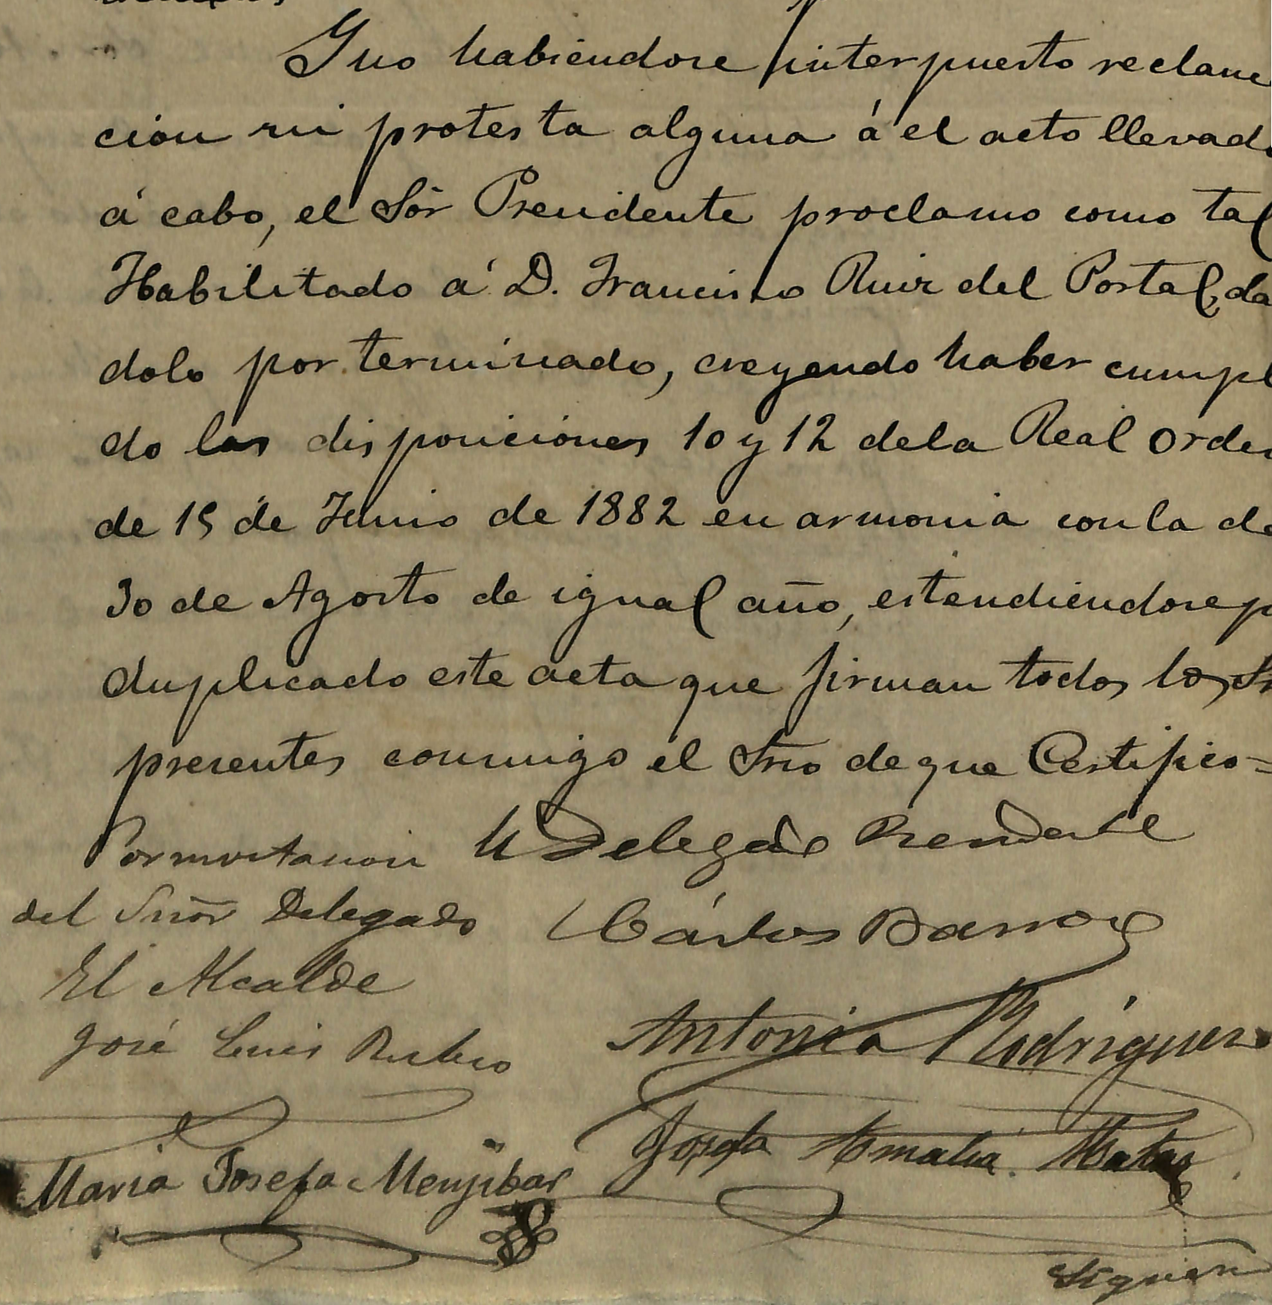 Y no habiendose interpuesto reclama
cion ni protesta alguna á el acto llevado
á cabo, el Sõr Presidente proclamo como tal
Habilitado á D. Francisco Ruiz del Portal, da
dolo por terminado, creyendo haber cumpli
do las disposiciones 10 y 12 de la Real Orden
de 15 de Junio de 1882 en armonia con la de
30 de Agosto de igual año, estendiendose p
duplicado este acta que firman todos los Sr
presentes conmigo el Srio de que Certifico=
Por invitacion
del Señor Delegado
El Alcalde
José Luis Rubio
El Delegado Presidente
Cárlos Barroz
Antonia Rodriguez
Josefa Amalia Matas
Maria Josefa Menjibar
Siguen